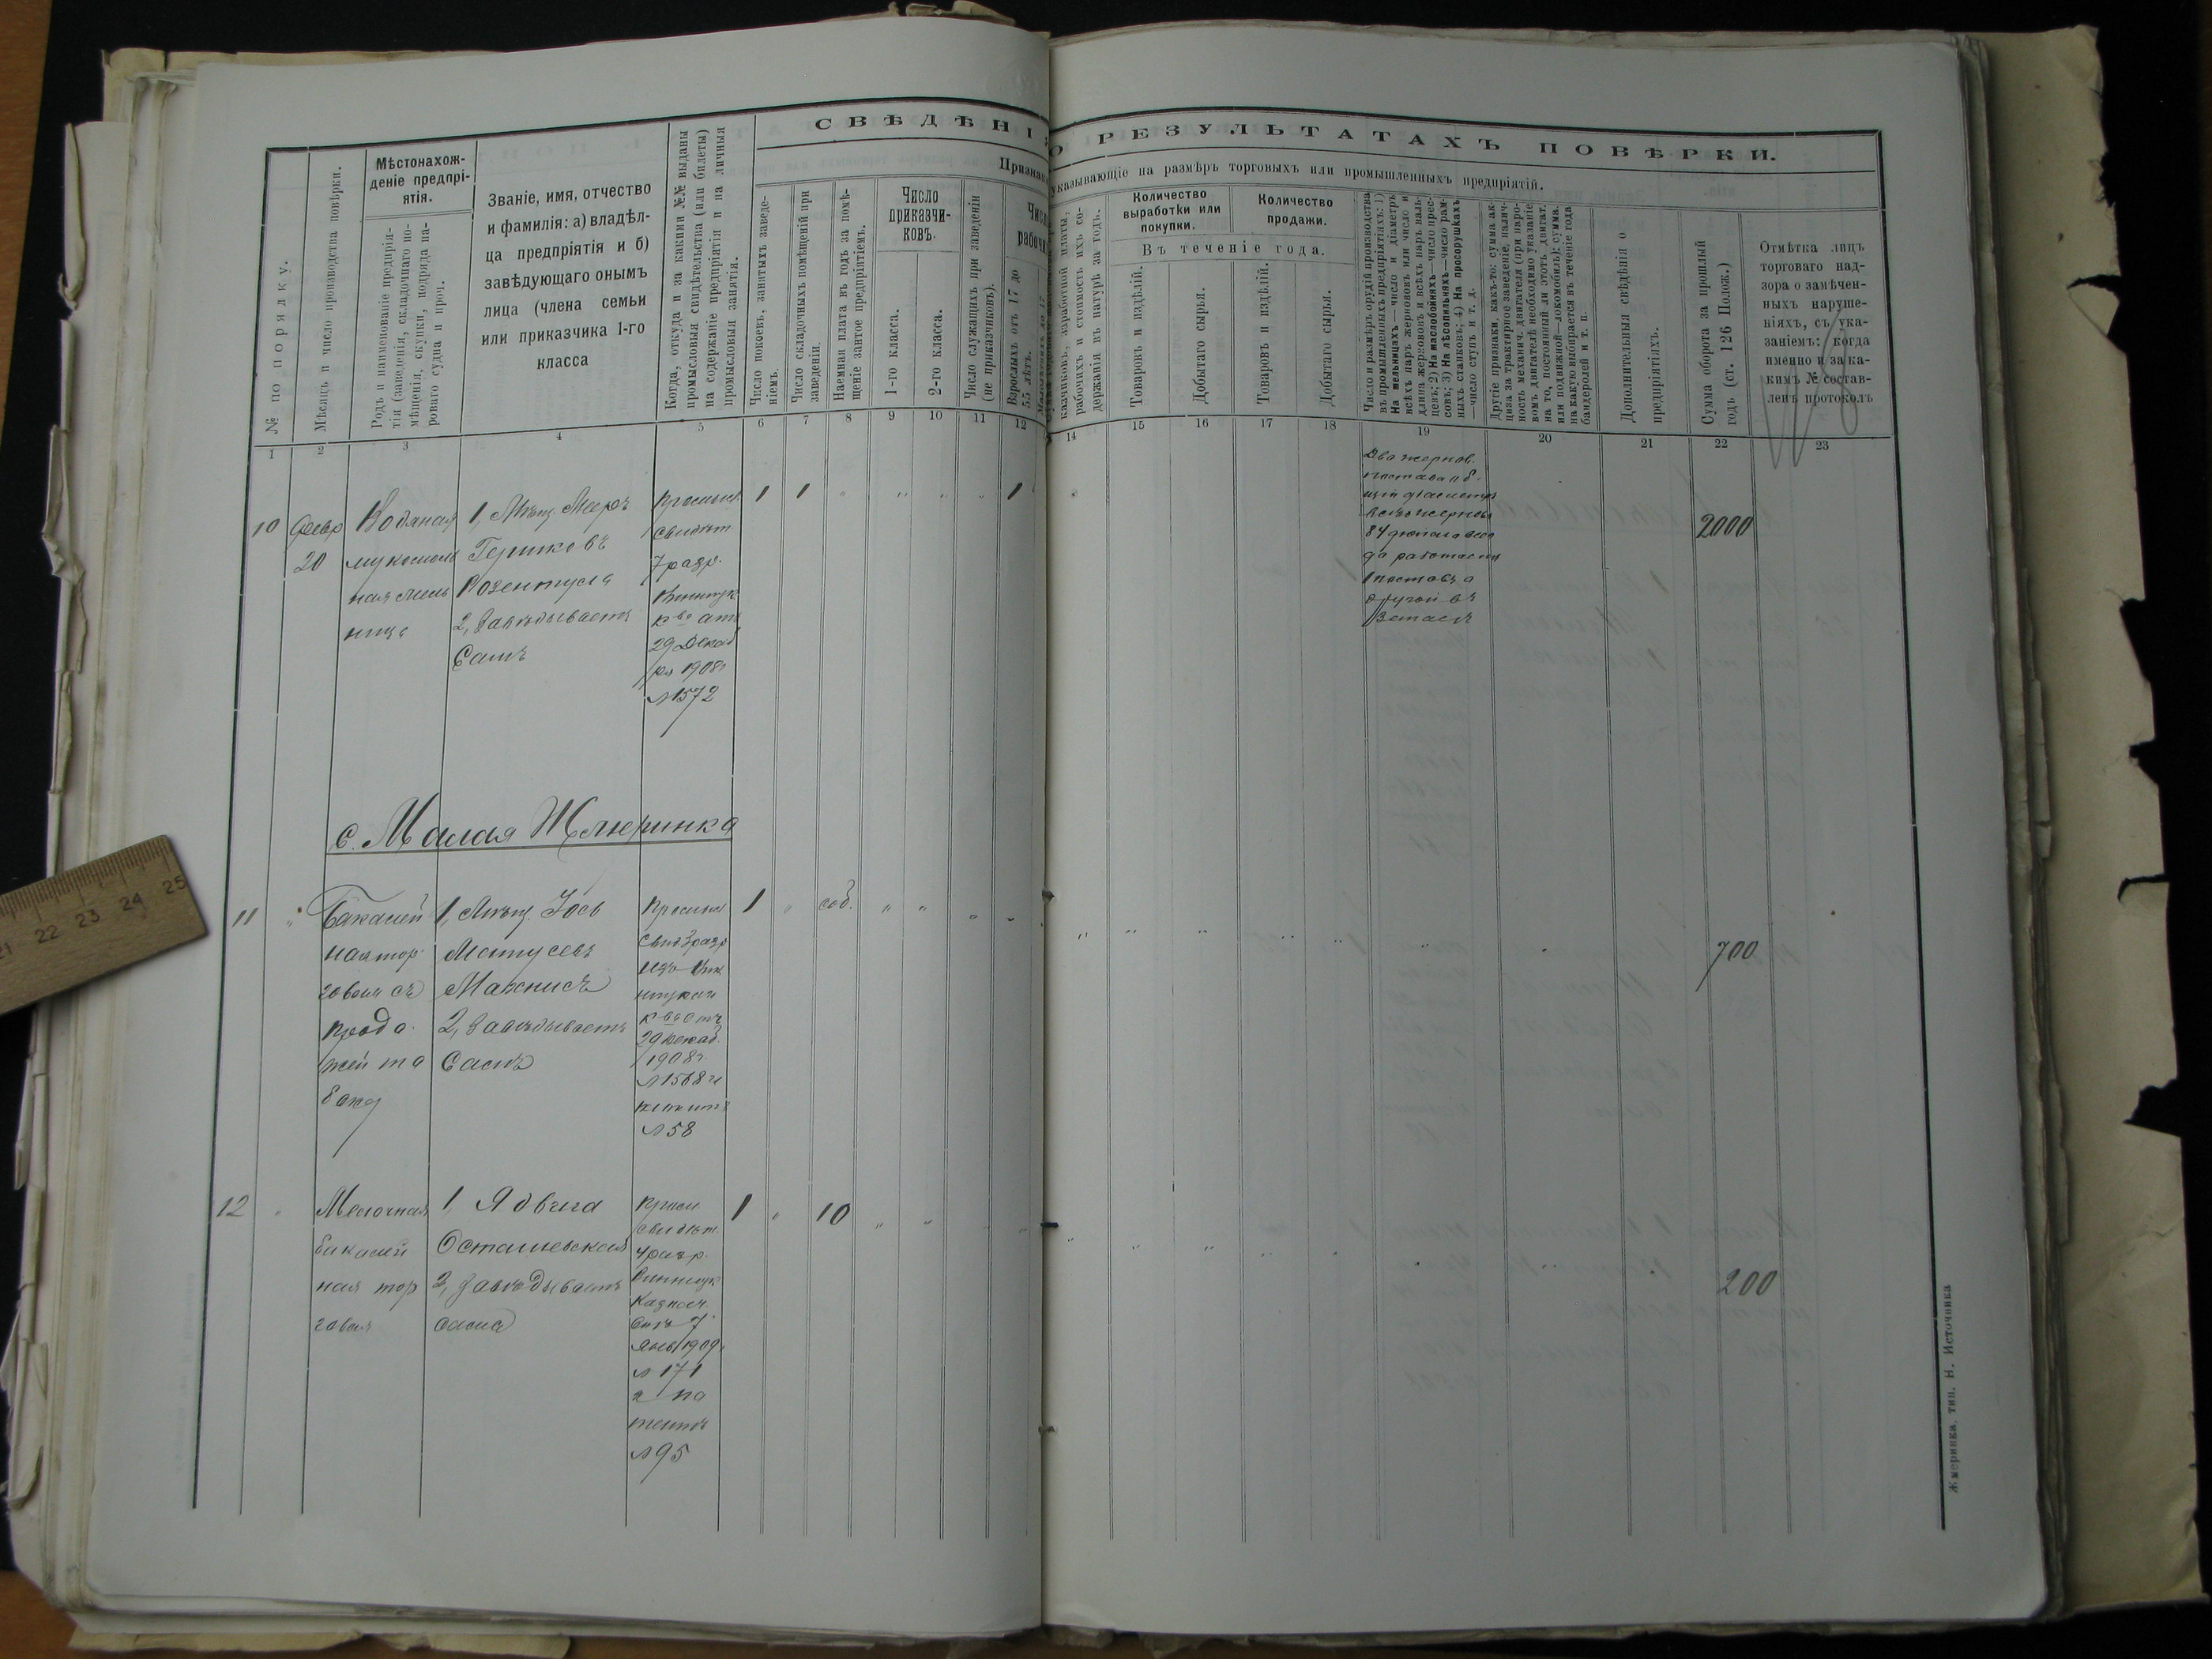 СВѢДѢНІЯ О РЕЗУЛЬТАТАХЪ ПОВѢРКИ.
указывающіе на размѣръ торговыхъ или промышленныхъ предпріятій.
№ по порядку.
Мѣсяцъ и число производства повѣрки.
Мѣстонахож-
деніе предпрі-
ятія.
Родъ и наименованіе предпрія-
тія (заведенія, складочнаго по-
мѣщенія, скупки, подряда па-
роваго судна и проч.
Званіе, имя, отчество
и фамилія: а) владѣл-
ца предпріятія и б)
завѣдующаго онымъ
лица (члена семьи
или приказчика 1-го
класса
Когда, откуда и за какими №№ выданы
промысловыя свидѣтельства (или билеты)
на содержаніе предпріятія и на личныя
промысловыя занятія.
Число покоевъ, занятыхъ заведе-
ніемъ.
Число складочныхъ помѣщеній при
заведеніи.
Наемная плата въ годъ за помѣ-
щеніе занятое предпріятіемъ.
Число
приказчи-
ковъ.
1-го класса.
2-го класса.
Число служащихъ при заведеніи
(не приказчиковъ).
Взрослыхъ отъ 17 до
55 лѣтъ.
казчиковъ, заработной платы,
рабочихъ и стоимость ихъ со-
держанія въ натурѣ за годъ.
Количество
выработки или
покупки.
Количество
продажи.
Въ теченіе года.
Товаровъ и издѣлій.
Добытаго сырья.
Товаровъ и издѣлій.
Добытаго сырья.
Число и размѣръ орудій производства
въ промышленныхъ предпріятіяхъ: 1)
На мельницахъ—число и діаметръ
всѣхъ паръ жернововъ или число и
длина жернововъ и всѣхъ паръ валь-
цевъ; 2) На маслобойняхъ—число прес-
совъ; 3) На лѣсопильняхъ—число рам-
ныхъ станковъ; 4) На просорушкахъ
—число ступъ и т. д.
Другіе признаки, какъ-то: сумма ак-
циза за трактирное заведеніе, налич-
ность механич. двигателя (при паро-
вомъ двигателѣ необходимо указаніе
на то, постоянный ли этотъ двигат.
или подвижной—локомобиль); сумма
на какую выбирается въ теченіе года
бандеролей и т. п.
Дополнительныя свѣдѣнія о
предпріятіяхъ.
Сумма оборота за прошлый
годъ (ст. 126 Полож.)
Отмѣтка лицъ
торговаго над-
зора о замѣчен-
ныхъ наруше-
ніяхъ, съ ука-
заніемъ: когда
именно и за ка-
кимъ № состав-
ленъ протоколъ
1 2 3 4 5 6 7 8 9 10 11 12 14 15 16 17 18 19 20 21 22 23
10
Февр
20
Водяная
мукомоль
ная мель
ница
1, Мѣщ. Мееръ
Гершковъ
2, Завѣдываетъ
Самъ
Промысл
свидѣт
7 разр.
Винницк
к-во отъ
29 Декаб
ря 1908 г
№1572
1 1 " " " " 1
Два жернов.
постава об-
щій діаметръ
84 дюйма все
да работаетъ
1 поставъ а
другой въ
запасѣ
2000
с. Малая Жмеринка
11
"
Бакалей
ная тор
говля съ
прода
жей та
баку
1, Мѣщ. Іось
Матусевъ
2, Завѣдываетъ
Самъ
Промысл
свид 3 разр
к-ва отъ
29 Декаб.
1908 г.
№1568 и
№58
1 " соб. " " " "
700
12
"
Мелочная
бакалей
ная тор
говля
1, Ядвига
Осташевская
2, Завѣдываетъ
сама
Пром.
свидѣт.
4 разр.
Винницк
Казнач.
отъ 7
Янв 1909
№ 171
и па
тентъ
№95
1 " 10 " "
200
Жмеринка, тип. Н. Источника